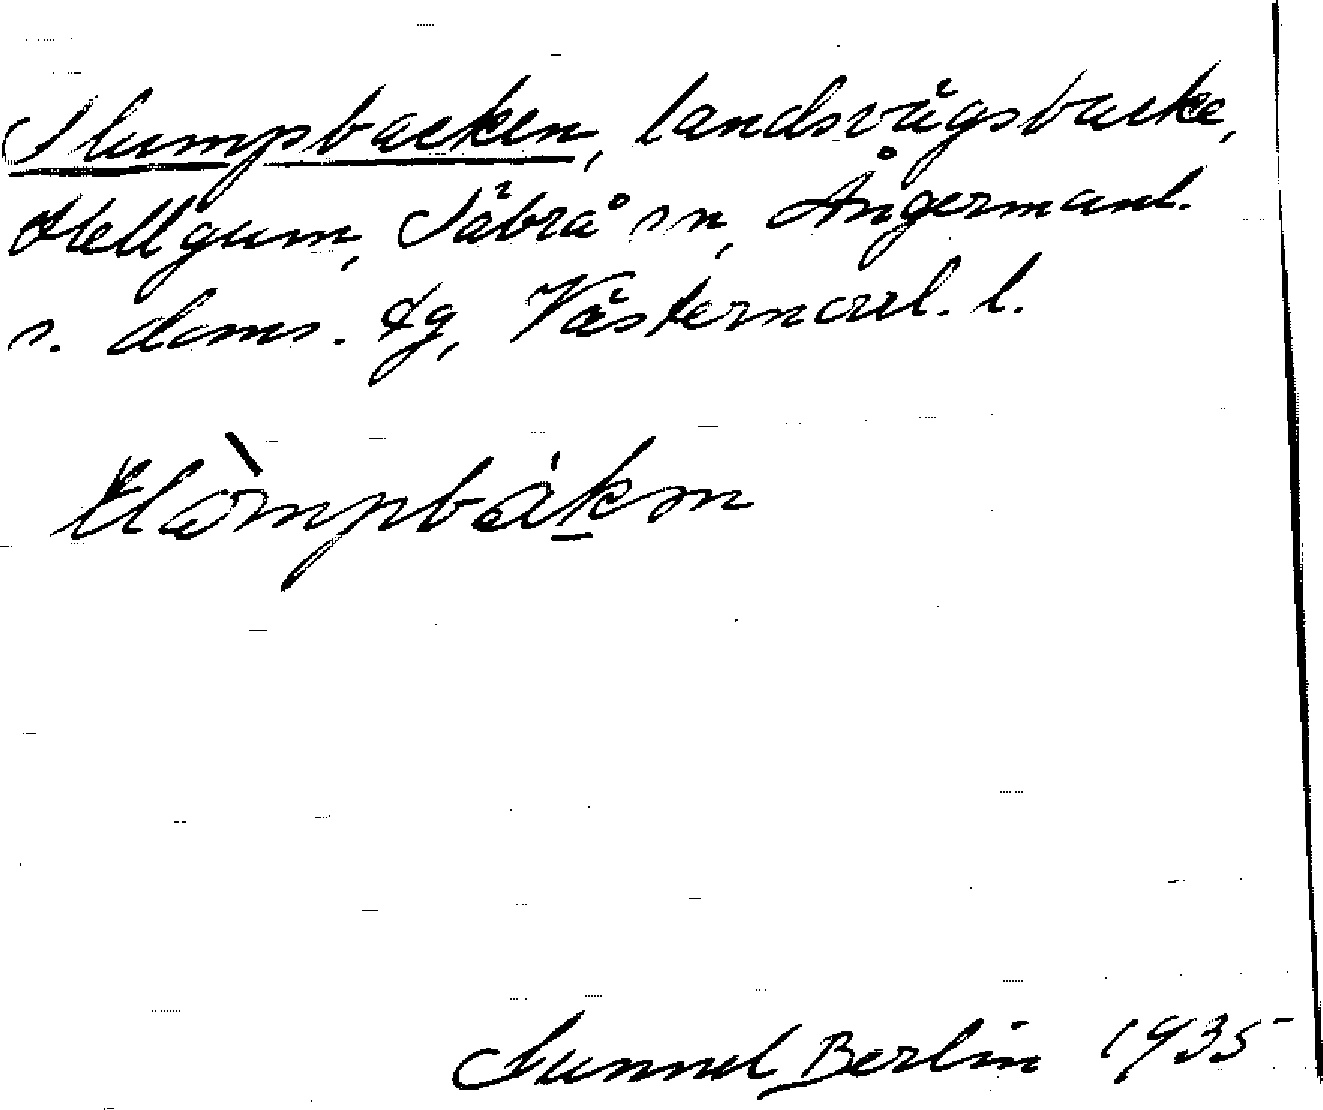 Slumpbacken, landsvägsbacke,
Hellgum, Säbrå sn, Ångermanl.
s. doms. tg, Västernorrl. l.
Gunnel Berlin 1935